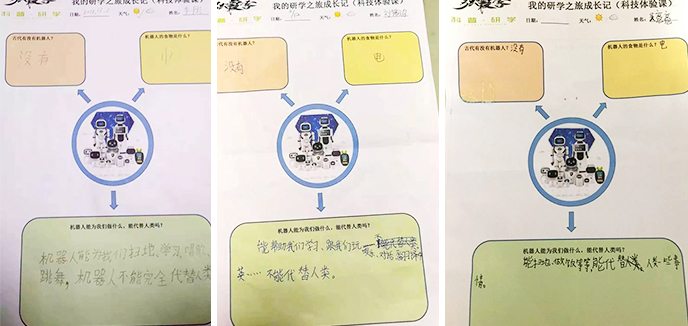 我的研学之旅成长记（科技体验课）
科普研学
日期:
天气:
姓名:
古代有没有机器人?
没有
机器人的食物是什么?
机器人能为我们做什么，能代替人类吗?
机器人能为我们扫地、学习、唱歌、
跳舞，机器人不能完全代替人类
我的研学之旅成长记（科技体验课）
科普研学
日期:
天气:
姓名:
古代有没有机器人?
没有
机器人的食物是什么?
电
机器人能为我们做什么，能代替人类吗?
能帮助我们学习、跟我们玩
英……不能代替人类。
我的研学之旅成长记（科技体验课）
科普研学
日期:
天气:
姓名:
古代有没有机器人?
没有
机器人的食物是什么?
电
机器人能为我们做什么，能代替人类吗?
能扫地、做饭等等,能代替人类,人类一些事
情。